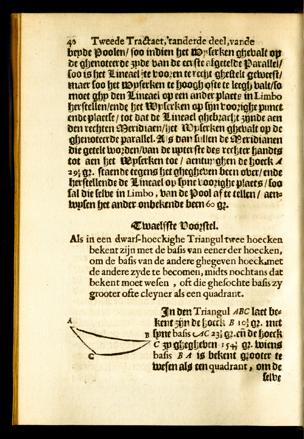 40 Tweede Tractaet, 'tanderde deel, vande
beyde Poolen/ soo indien het Wyserken ghevalt op
de ghenoteerde zyde van de eerste afgetelde Parallel/
soo is het Lineael te vooren te recht ghestelt geweest/
maer soo het Wyserken te hoogh ofte te leegh valt/ soo
moet ghy den Lineael op een ander plaets in Limbo
herstellen/ ende het Wyserken op syn voorigh punct
ende plaetse/ tot dat de Lineael ghebracht zynde aen
den rechten Meridiaen/ het Wyserken ghevalt op de
ghenoteerde parallel. Als dan sullen de Meridianen
die getelt worden/ van de uyterste des rechter handts
tot aen het Wyserken toe/ aenwyghen de hoeck A
29½ gr. staende tegens het ghegheven been over/ ende
herstellende de Lineael op syne voorighe plaets/ soo
sal die selve in Limbo, van de Pool af te tellen/ aen-
wysen het ander onbekende been 60 gr.
Twaelfste Voorstel.
Als in een dwars-hoeckighe Triangul twee hoecken
bekent zijn met de basis van eener der hoecken,
om de basis van de andere ghegeven hoeck met
de andere zyde te becomen, midts nochtans dat
bekent moet wesen, oft die ghesochte basis zy
grooter ofte cleyner als een quadrant.
In den Triangul ABC laet be-
kent zijn de hoeck B gr. met
syne basis AC gr. en de hoeck
C zy ghegheven gr. wiens
basis BA is bekent grooter te
wesen als een quadrant, om de
selve
A
B
C